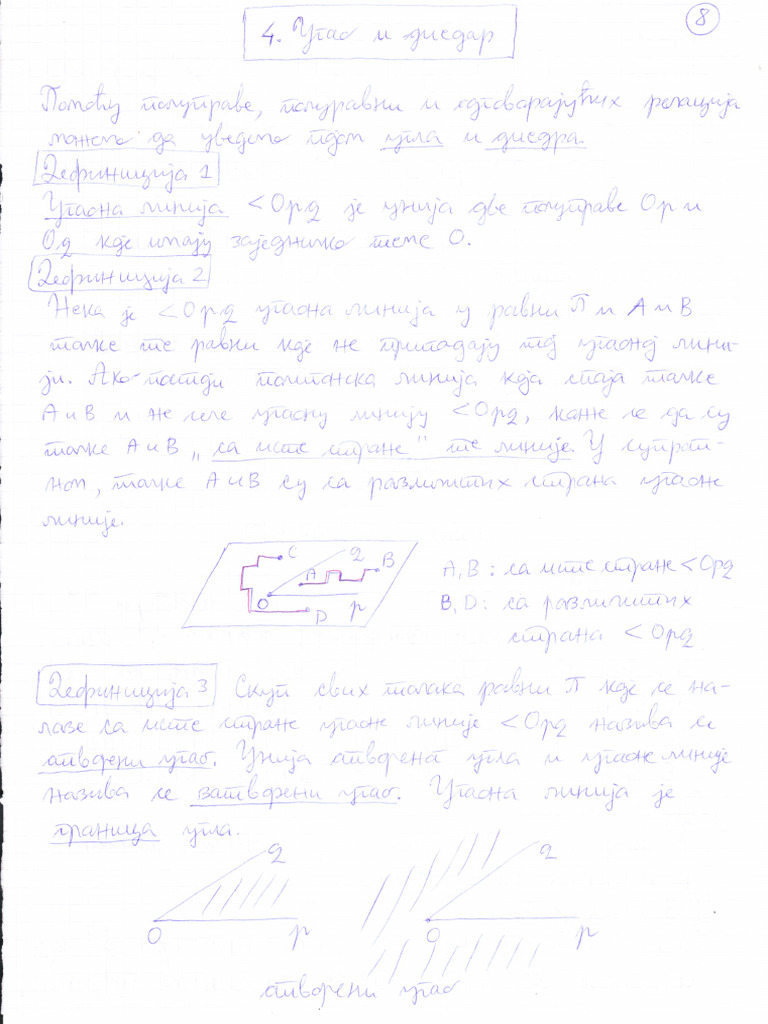 8
4. Угао и диедар
Помоћу полуправе, полуравни и одговарајућих релација
можемо да уведемо појам угла и диедра.
Дефиниција 1
Угаона линија <Opq је унија две полуправе Op и
Oq које имају заједничко теме O.
Дефиниција 2
Нека је <Opq угаона линија у равни П и A и B
тачке те равни које не припадају тој угаоној лини-
ји. Ако постоји полигонска линија која спаја тачке
A и B и не сече угаону линију <Opq, каже се да су
тачке A и B „са исте стране" те линије. У супрот-
ном, тачке A и B су са различитих страна угаоне
линије.
C q B
A
O p
D
A, B : са исте стране <Opq
B, D : са различитих
страна <Opq
Дефиниција 3 Скуп свих тачака равни П које се на-
лазе са исте стране угаоне линије <Opq назива се
отворени угао. Унија отвореног угла и угаоне линије
назива се затворени угао. Угаона линија је
граница угла.
q q
O p O p
отворени угао